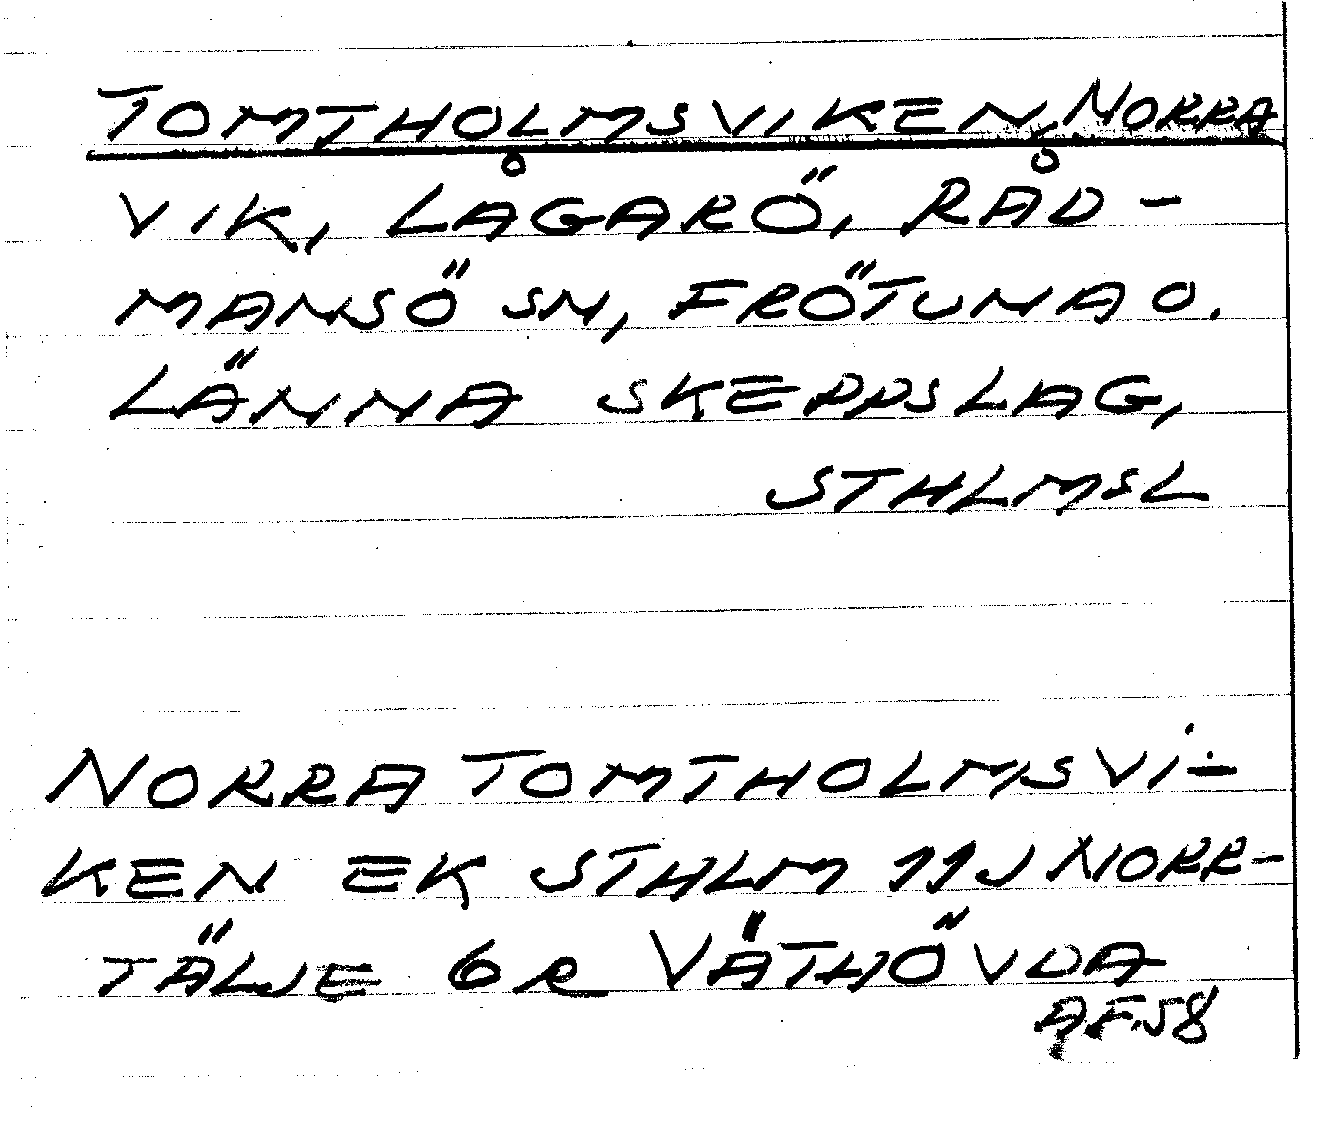 TOMTHOLMSVIKEN, NORRA
VIK, LÅGARÖ, RÅD-
MANSÖ SN, FRÖTUNA O.
LÄNNA SKEPPSLAG,
STHLMSL
NORRA TOMTHOLMSVI-
KEN EK STHLM 11J NORR-
TÄLJE 6R VÄTHÖVDA
AF.58